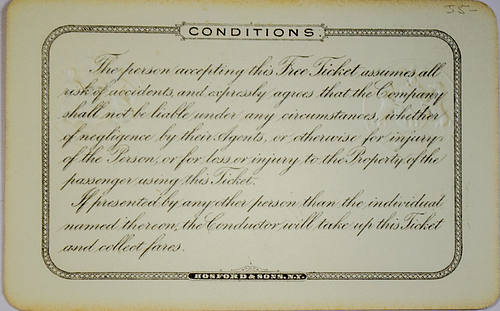 55-
CONDITIONS.
The person accepting this Free Ticket assumes all
risk of accidents, and expressly agrees that the Company
shall not be liable under any circumstances, whether
of negligence by their Agents, or otherwise for injury
of the Person, or for loss or injury to the Property of the
passenger using this Ticket.
If presented by any other person than the individual
named thereon, the Conductor will take up this Ticket
and collect fares.
HOSFORD & SONS. N.Y.